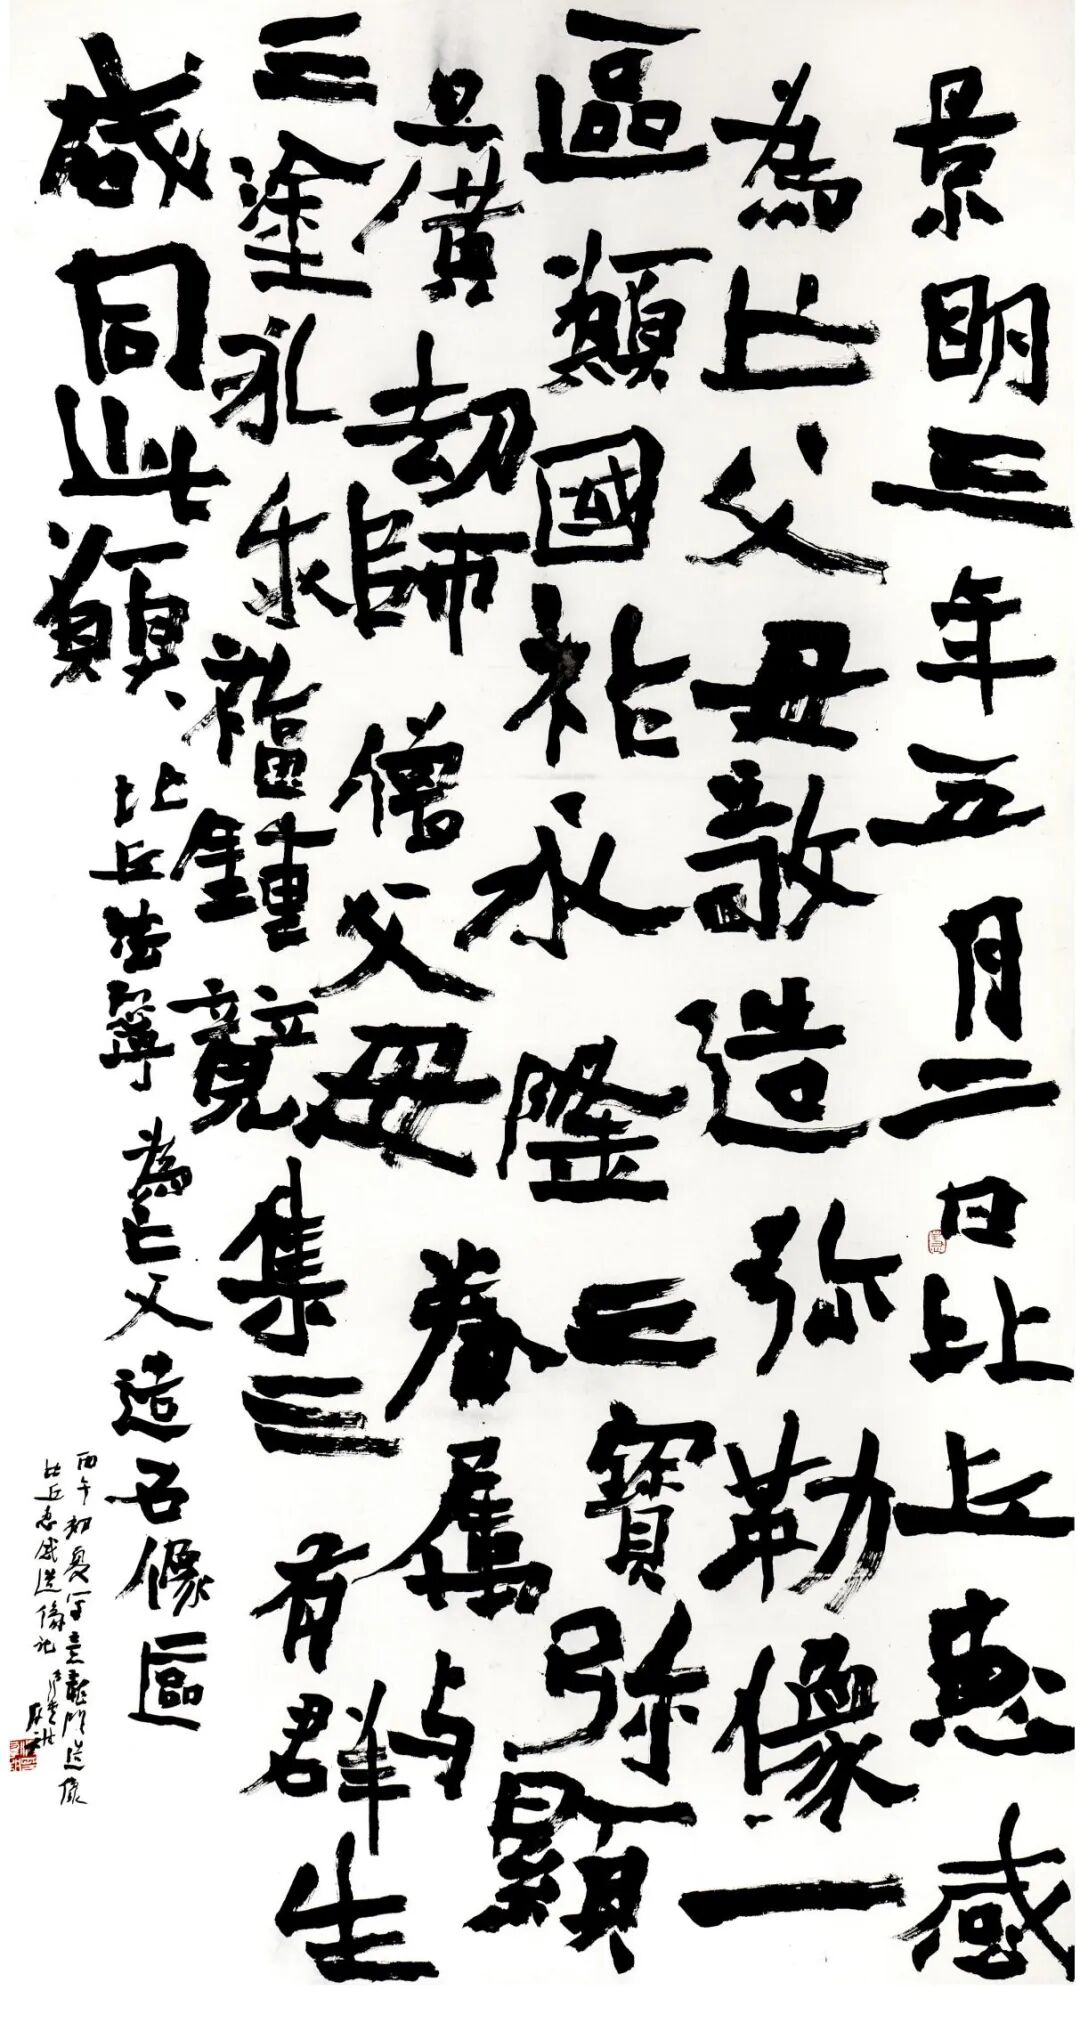 景明三年五月二日比丘惠感
為亡父母敬造弥勒像一
區願國祚永隆三寶弥顯
曠劫師僧父母眷屬与
三塗永乖福鍾竟集三有群生
咸同此願
比丘法寧為亡父造石像區
丙午初夏写意龍門造像
比丘惠感造像记